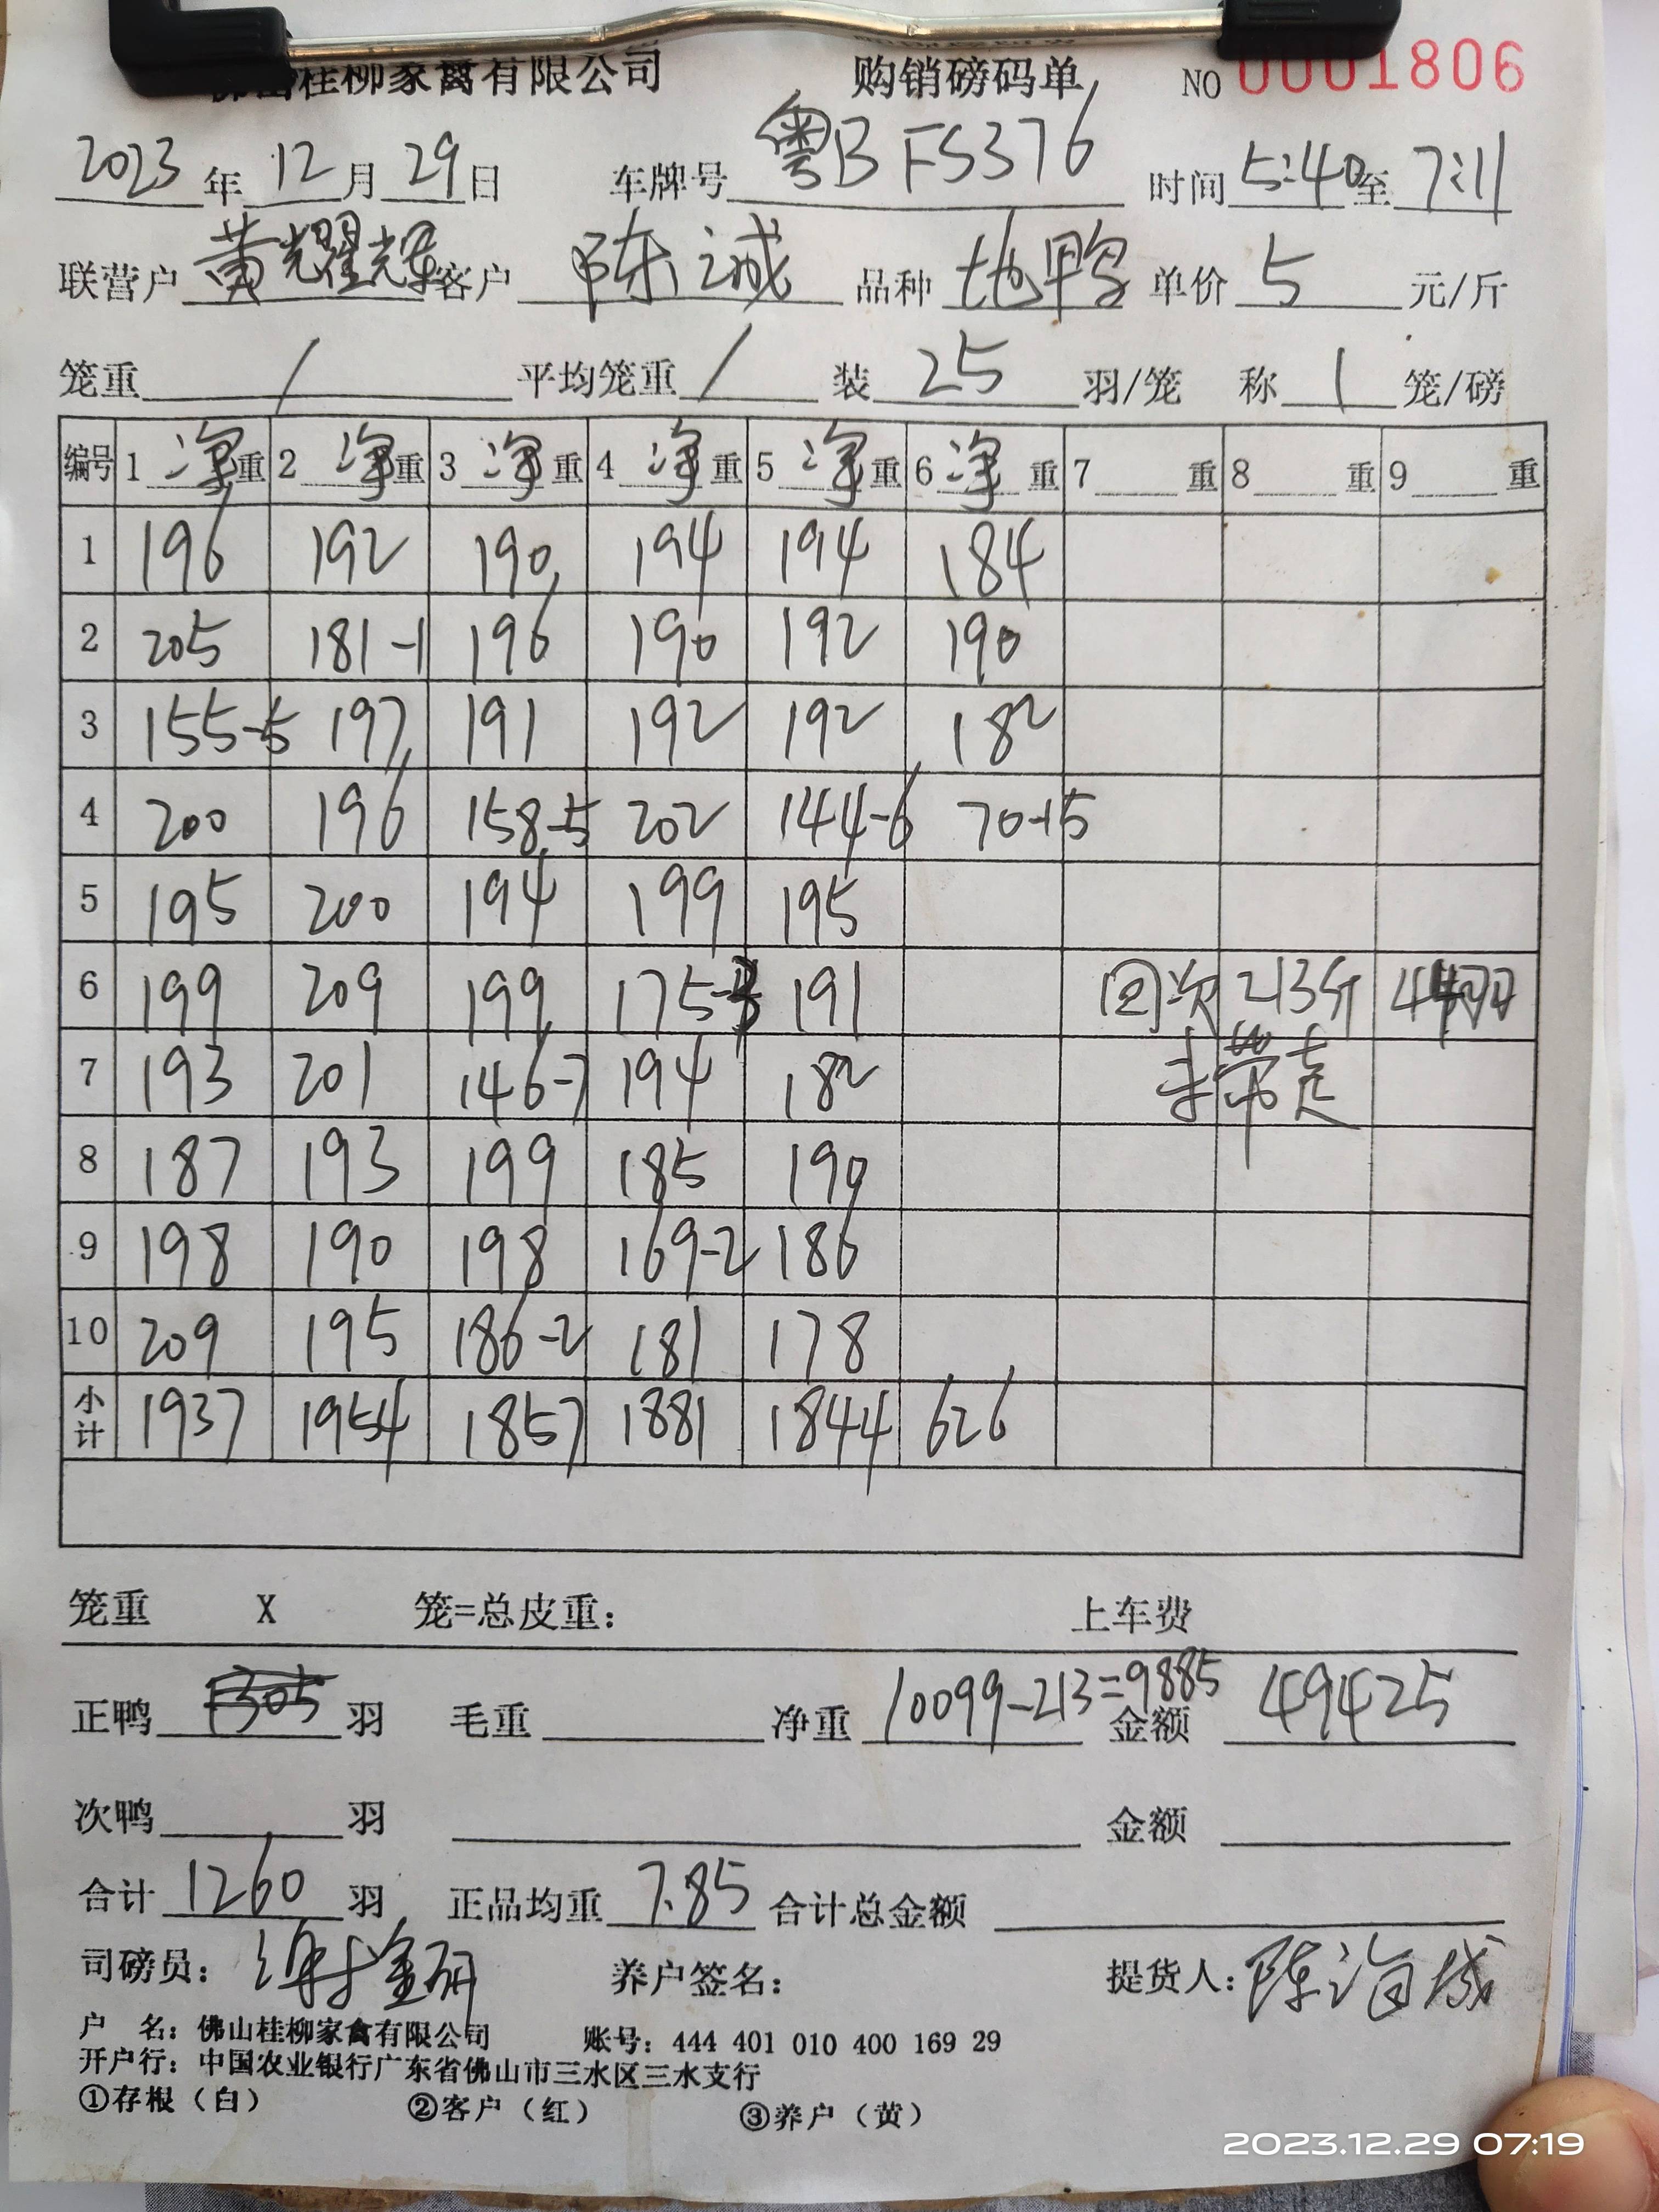 佛山桂柳家禽有限公司 购销磅码单 NO 0001806
2023年12月29日 车牌号粤BFS376 时间5:40至7:11
联营户黄耀辉客户陈诚 品种地鸭 单价5元/斤
笼重/ 平均笼重/ 装25羽/笼 称1笼/磅
编号 1净重 2净重 3净重 4净重 5净重 6净重 7重 8重 9重
1 196 192 190 194 194 184
2 205 181-1 196 190 192 190
3 155-5 197 191 192 192 182
4 200 196 158-5 202 144-6 70-15
5 195 200 194 199 195
6 199 209 199 175-3 191 回次 213斤 44羽
7 193 201 146-7 194 182 未带走
8 187 193 199 185 190
9 198 190 198 169-2 186
10 209 195 186-2 181 178
小计 1937 1954 1857 1881 1844 626
笼重 X 笼=总皮重: 上车费
正鸭1305羽 毛重 净重10099-213=9885 金额49425
次鸭 羽 金额
合计1260羽 正品均重7.85 合计总金额
司磅员: 养户签名: 提货人:陈海城
户 名: 佛山桂柳家禽有限公司 账号: 444 401 010 400 169 29
开户行: 中国农业银行广东省佛山市三水区三水支行
①存根（白） ②客户（红） ③养户（黄）
2023.12.29 07:19